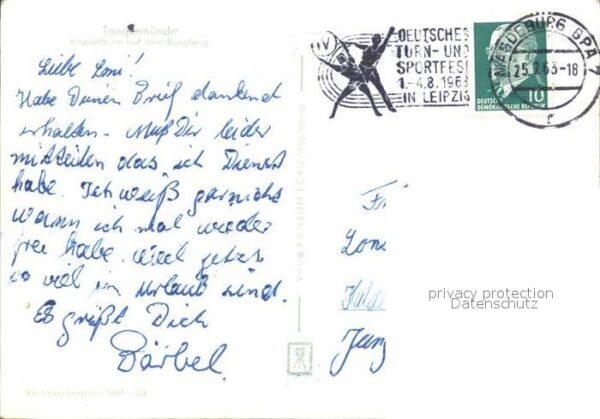 Tangermünde
Kapitelturm auf dem Burgberg
Liebe Loni!
Habe Deinen Brief dankend
erhalten. Muß Dir leider
mitteilen das ich Dienst
habe. Ich weiß garnicht
wann ich mal wieder
frei habe. weil jetzt
so viel im Urlaub sind.
Es grüßt Dich
Bärbel.
Verbraucherpreis DM -,20
Verlag KONSUM FOKO Magdeburg
IV
DEUTSCHES
TURN- UND
SPORTFEST
1.-4.8.1963
IN LEIPZIG
MAGDEBURG BPA 7
25.7.63-18
r
DEUTSCHE
DEMOKRATISCHE REPUBLIK
10
privacy protection
Datenschutz